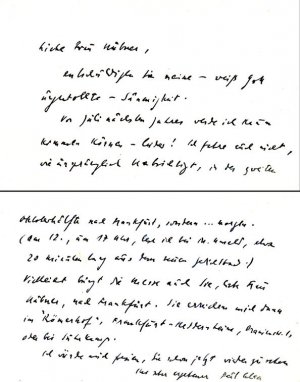 Liebe Frau Hübner,
entschuldigen Sie meine – weiß Gott
ungewollte – Säumigkeit.
Vor Juli nächsten Jahres werde ich kaum
kommen können – leider! Ich fahre auch nicht,
wie ursprünglich beabsichtigt, in der zweiten
Oktoberhälfte nach Frankfurt, sondern ... morgen.
(Am 12., um 17 Uhr, lese ich bei
20 Minuten lang aus dem neuen
Vielleicht bringt die Messe auch Sie, liebe Frau
Hübner, nach Frankfurt. Sie erreichen mich dann
im "Römerhof", Frankfurt-
oder bei Suhrkamp.
Ich würde mich freuen, Sie schon jetzt wiederzusehen
Ihr sehr ergebener Paul Celan